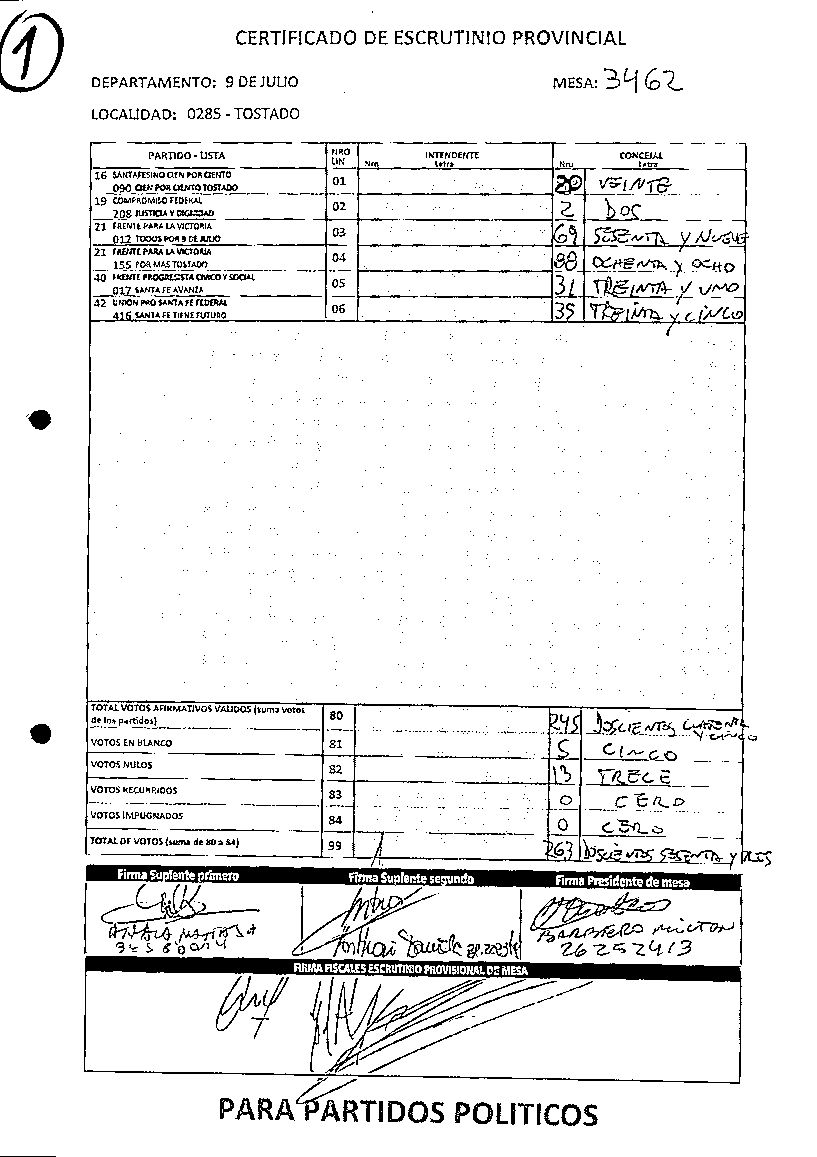 1
CERTIFICADO DE ESCRUTINIO PROVINCIAL
DEPARTAMENTO: 9 DE JULIO MESA: 3462
LOCALIDAD: 0285 - TOSTADO
PARTIDO - LISTA NRO LIN INTENDENTE CONCEJAL
Nro Letra Nro Letra
16 SANTAFESINO CIEN POR CIENTO
090 CIEN POR CIENTO TOSTADO 01 20 VEINTE
19 COMPROMISO FEDERAL
208 JUSTICIA Y DIGNIDAD 02 2 DOS
21 FRENTE PARA LA VICTORIA
012 TODOS POR 9 DE JULIO 03 69 SESENTA Y NUEVE
21 FRENTE PARA LA VICTORIA
155 POR MAS TOSTADO 04 88 OCHENTA Y OCHO
40 FRENTE PROGRESISTA CIVICO Y SOCIAL
017 SANTA FE AVANZA 05 31 TREINTA Y UNO
42 UNION PRO SANTA FE FEDERAL
416 SANTA FE TIENE FUTURO 06 35 TREINTA Y CINCO
TOTAL VOTOS AFIRMATIVOS VALIDOS (suma votos
de los partidos) 80 245 DOSCIENTOS CUARENTA Y CINCO
VOTOS EN BLANCO 81 5 CINCO
VOTOS NULOS 82 13 TRECE
VOTOS RECURRIDOS 83 0 CERO
VOTOS IMPUGNADOS 84 0 CERO
TOTAL DE VOTOS (suma de 80 a 84) 99 263 DOSCIENTOS SESENTA Y TRES
Firma Suplente primero Firma Suplente segundo Firma Presidente de mesa
BARRATERO MILTON
26252413
FIRMA FISCALES ESCRUTINIO PROVISIONAL DE MESA
PARA PARTIDOS POLITICOS